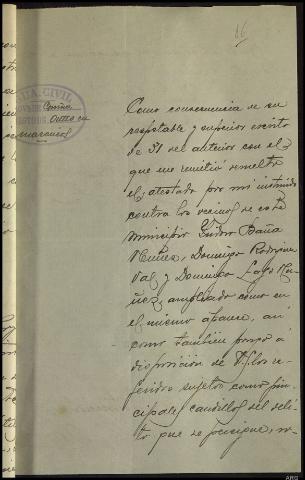 16
GUARDIA CIVIL
Coruña
Puesto de Outes en
Como consecuencia de su
respetable y superior escrito
de 31 del anterior con el
que me remitió
el atestado por mi instruido
contra los vecinos de este
Municipio Ysidro Baña
Núñez, Domingo Rodriguez
Vas y Domingo Lago
ampliado como en
el mismo aparece, asi
como tambien pongo á
disposición de V. los re-
feridos sujetos como prin-
cipales caudillos del deli-
to que se persigue,